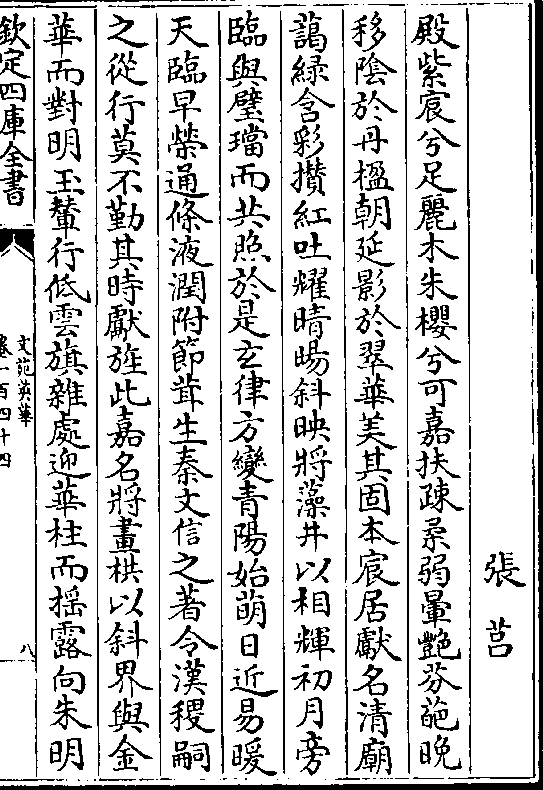 張莒
殿紫宸兮足麗木朱櫻兮可嘉扶疎柔弱暈艷芬葩晚
移陰於丹楹朝延影於翠華美其固本宸居獻名清廟
藹緑含彩攅紅吐耀晴暘斜映將藻井以相輝初月旁
臨與璧璫而共照於是玄律方變青陽始萌日近易暖
天臨早榮通條液潤附節茸生秦文信之著令漢稷嗣
之從行莫不勤其時獻旌此嘉名將畫栱以斜界與金
華而對明玉輦行低雲旗雜處迎華柱而揺露向朱明
欽定四庫全書
文苑英華
卷一百四十四
八